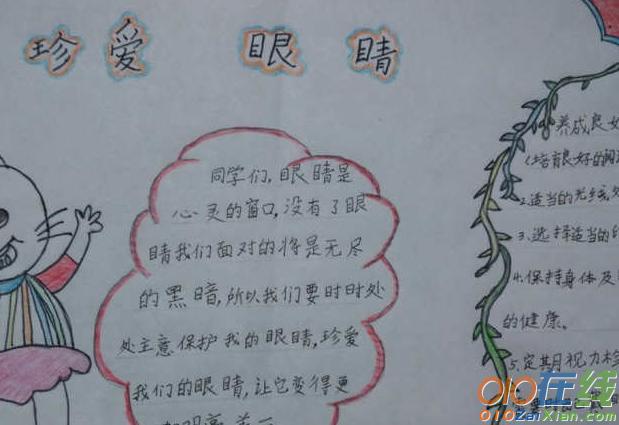 珍爱 眼睛
同学们,眼睛是
心灵的窗口,没有了眼
睛我们面对的将是无尽
的黑暗,所以我们要时时处
处主意保护我的眼睛,珍爱
我们的眼睛,让它变得更
养成良
1.培育良好的阅
2.适当的光线,
3.选择适当的
4.保持身体及
的健康。
5.定期视力检
OIO在线
OIOZaiXian.com